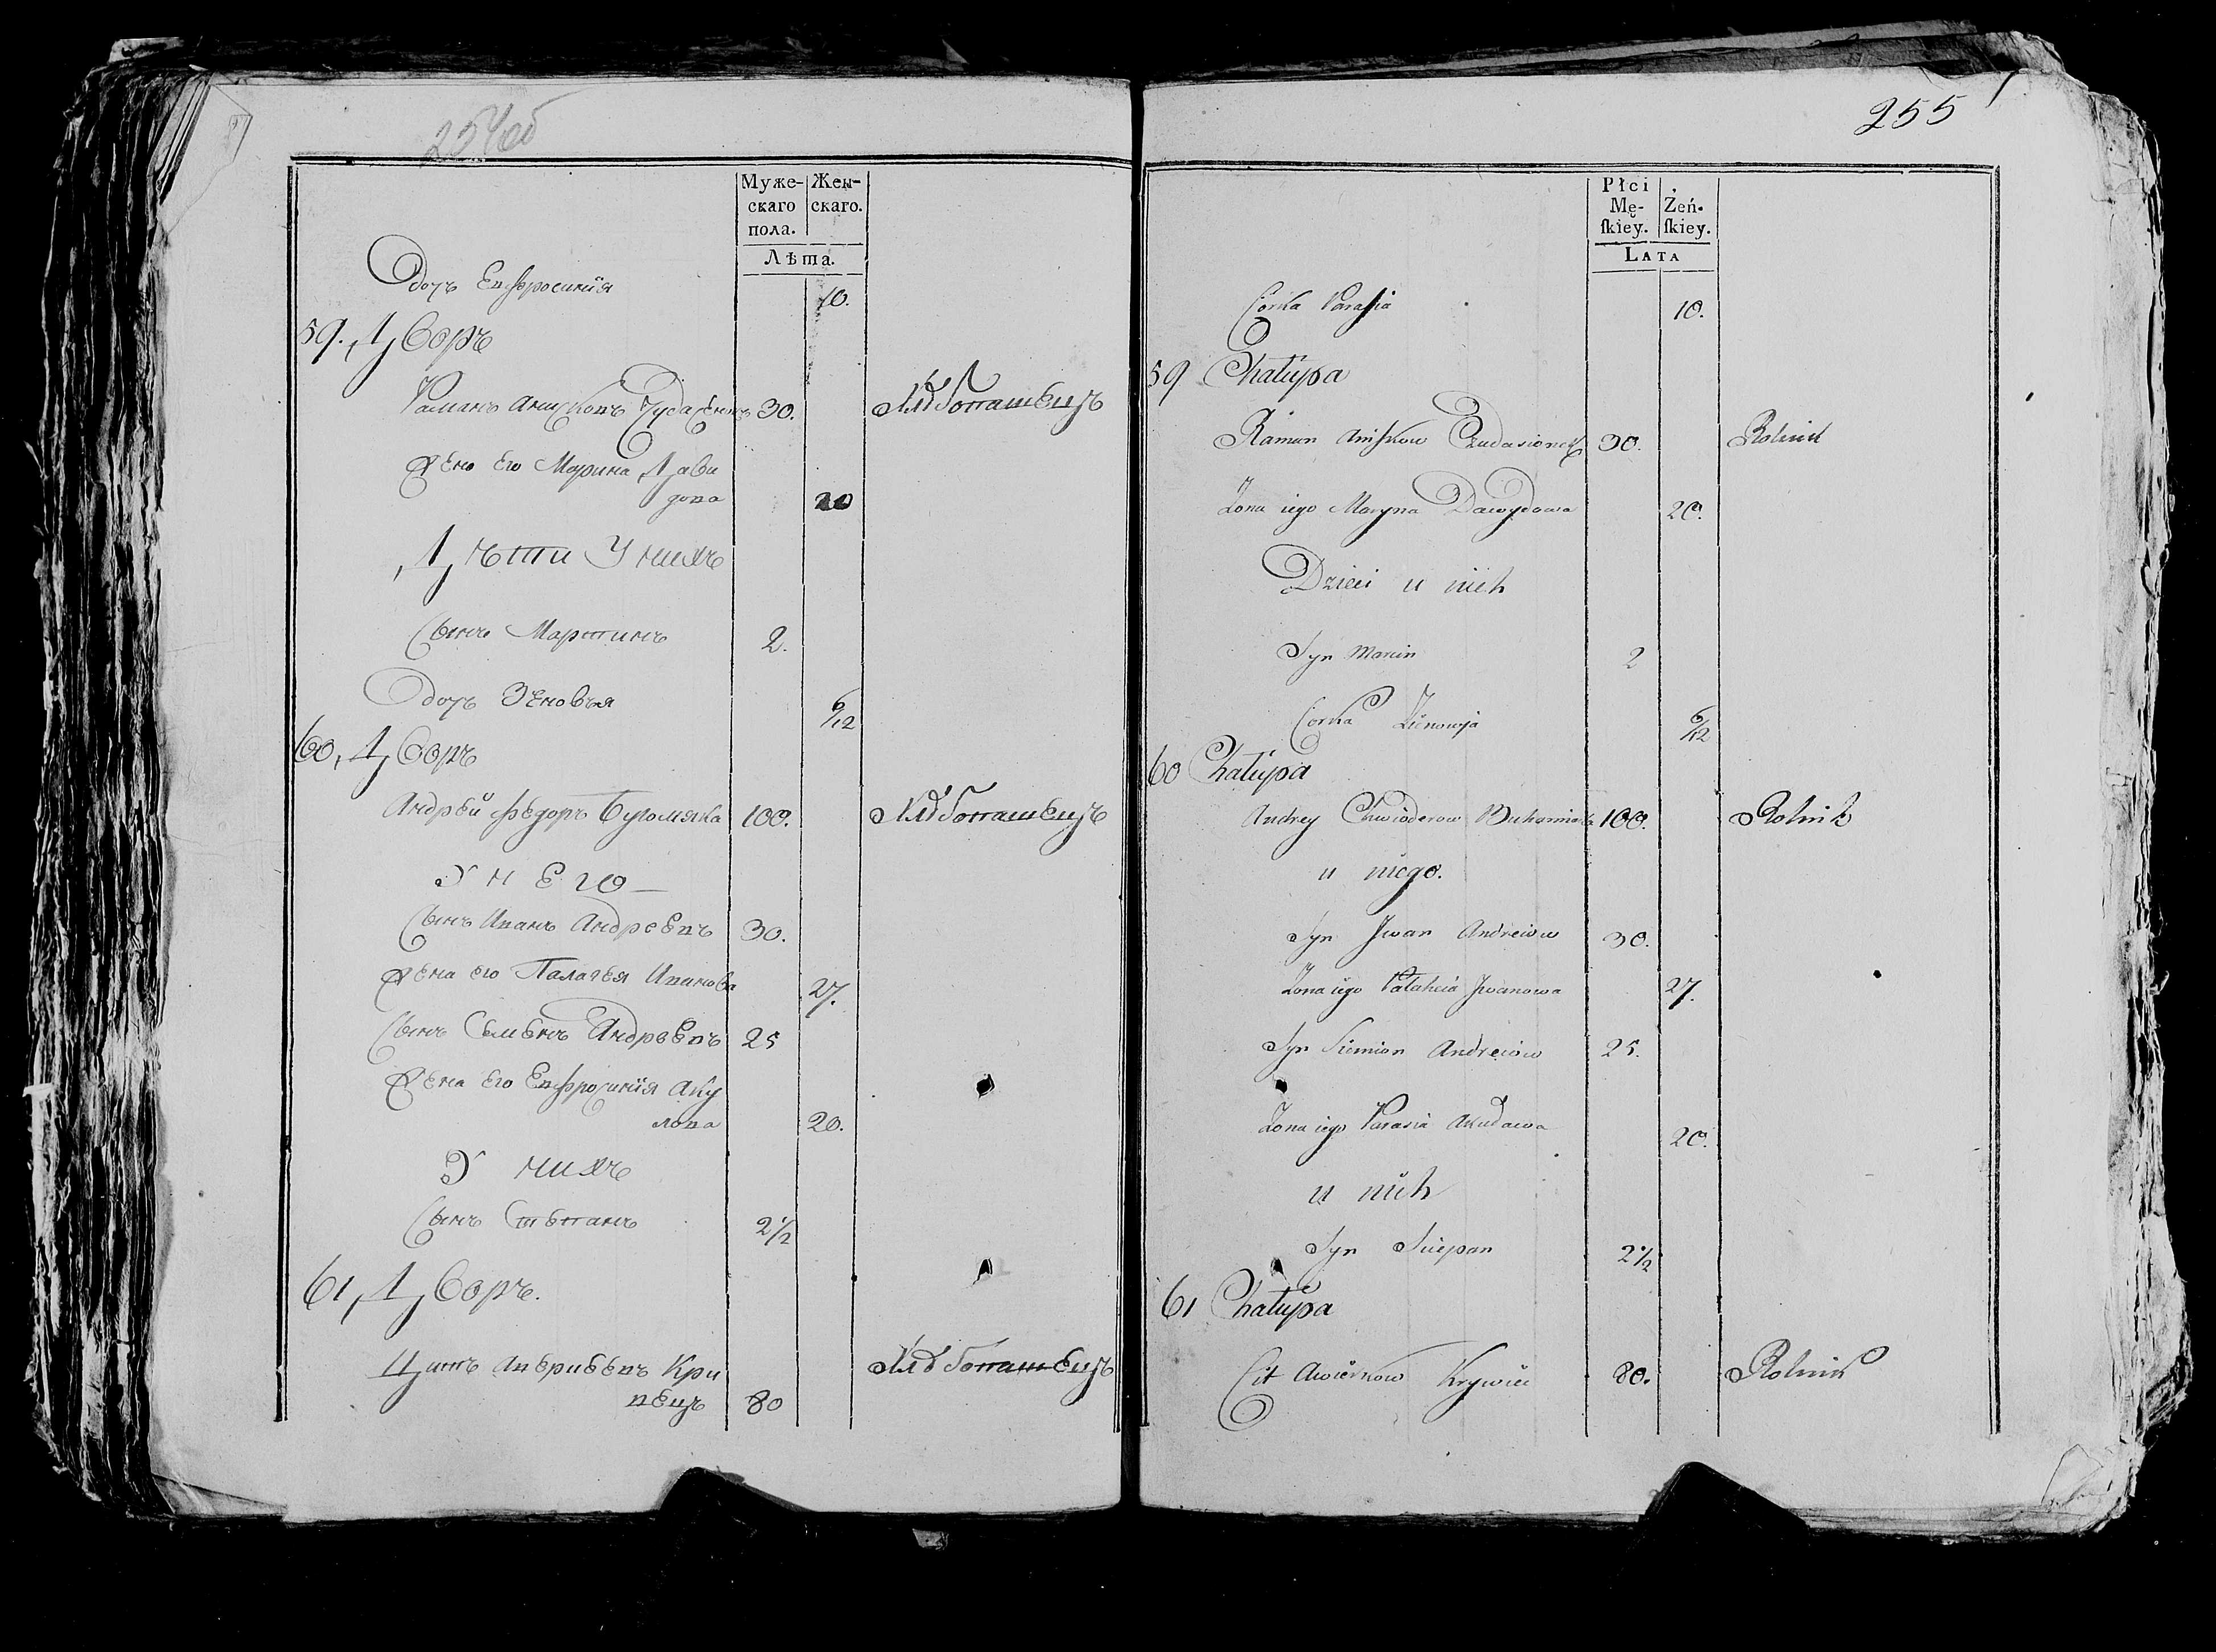 254об
Муже-
скаго
пола.
Жен-
скаго.
Лѣта.
дочъ Евфросинїя 10.
59. Дворъ
Раманъ Анисковъ Чудасіонокъ 30. Хлѣбопашецъ
Жена его Марина Дави
дова 20
Дѣти У нихъ
Сынъ Мартинъ 2.
дочъ Зѣновья 6/12
60, Дворъ
Андрей Фѣдоръ Бугомяка 100. Хлѣбопашецъ
У НЕГО
Сынъ Иванъ Андреевъ 30.
Жена его Палагея Иванова 27.
Сынъ Семѣнъ Андреевъ 25
Жена его Евфросинїя Аку
лова 20.
У нихъ
Сынъ Стѣпанъ 2 1/2
61, Дворъ.
Цитъ Кри
вецъ 80 Хлѣбопашецъ
255
Płci
Mę-
skiey.
Żeń-
skiey.
LATA
Corka Parasia 10.
59 Chałupa
Raman Aniskow Czudasionek 30. Rolnik
Zona iego Maryna Dawydowa 20.
Dzieci u nich
Syn Marcin 2
Corka Zienowja 6/12
60 Chałupa
Andrey Chwioderow Buhomiaka 100. Rolnik
u niego.
Syn Jwan Andreiow 30.
Zona iego Pałaheia Jwanowa 27.
Syn Siemion Andreiow 25.
Zona iego Parasia Akudawa 20.
u nich
Syn Sciepan 2 1/2
61 Chałupa
Cit Awierkow Krywiec 80. Rolnik